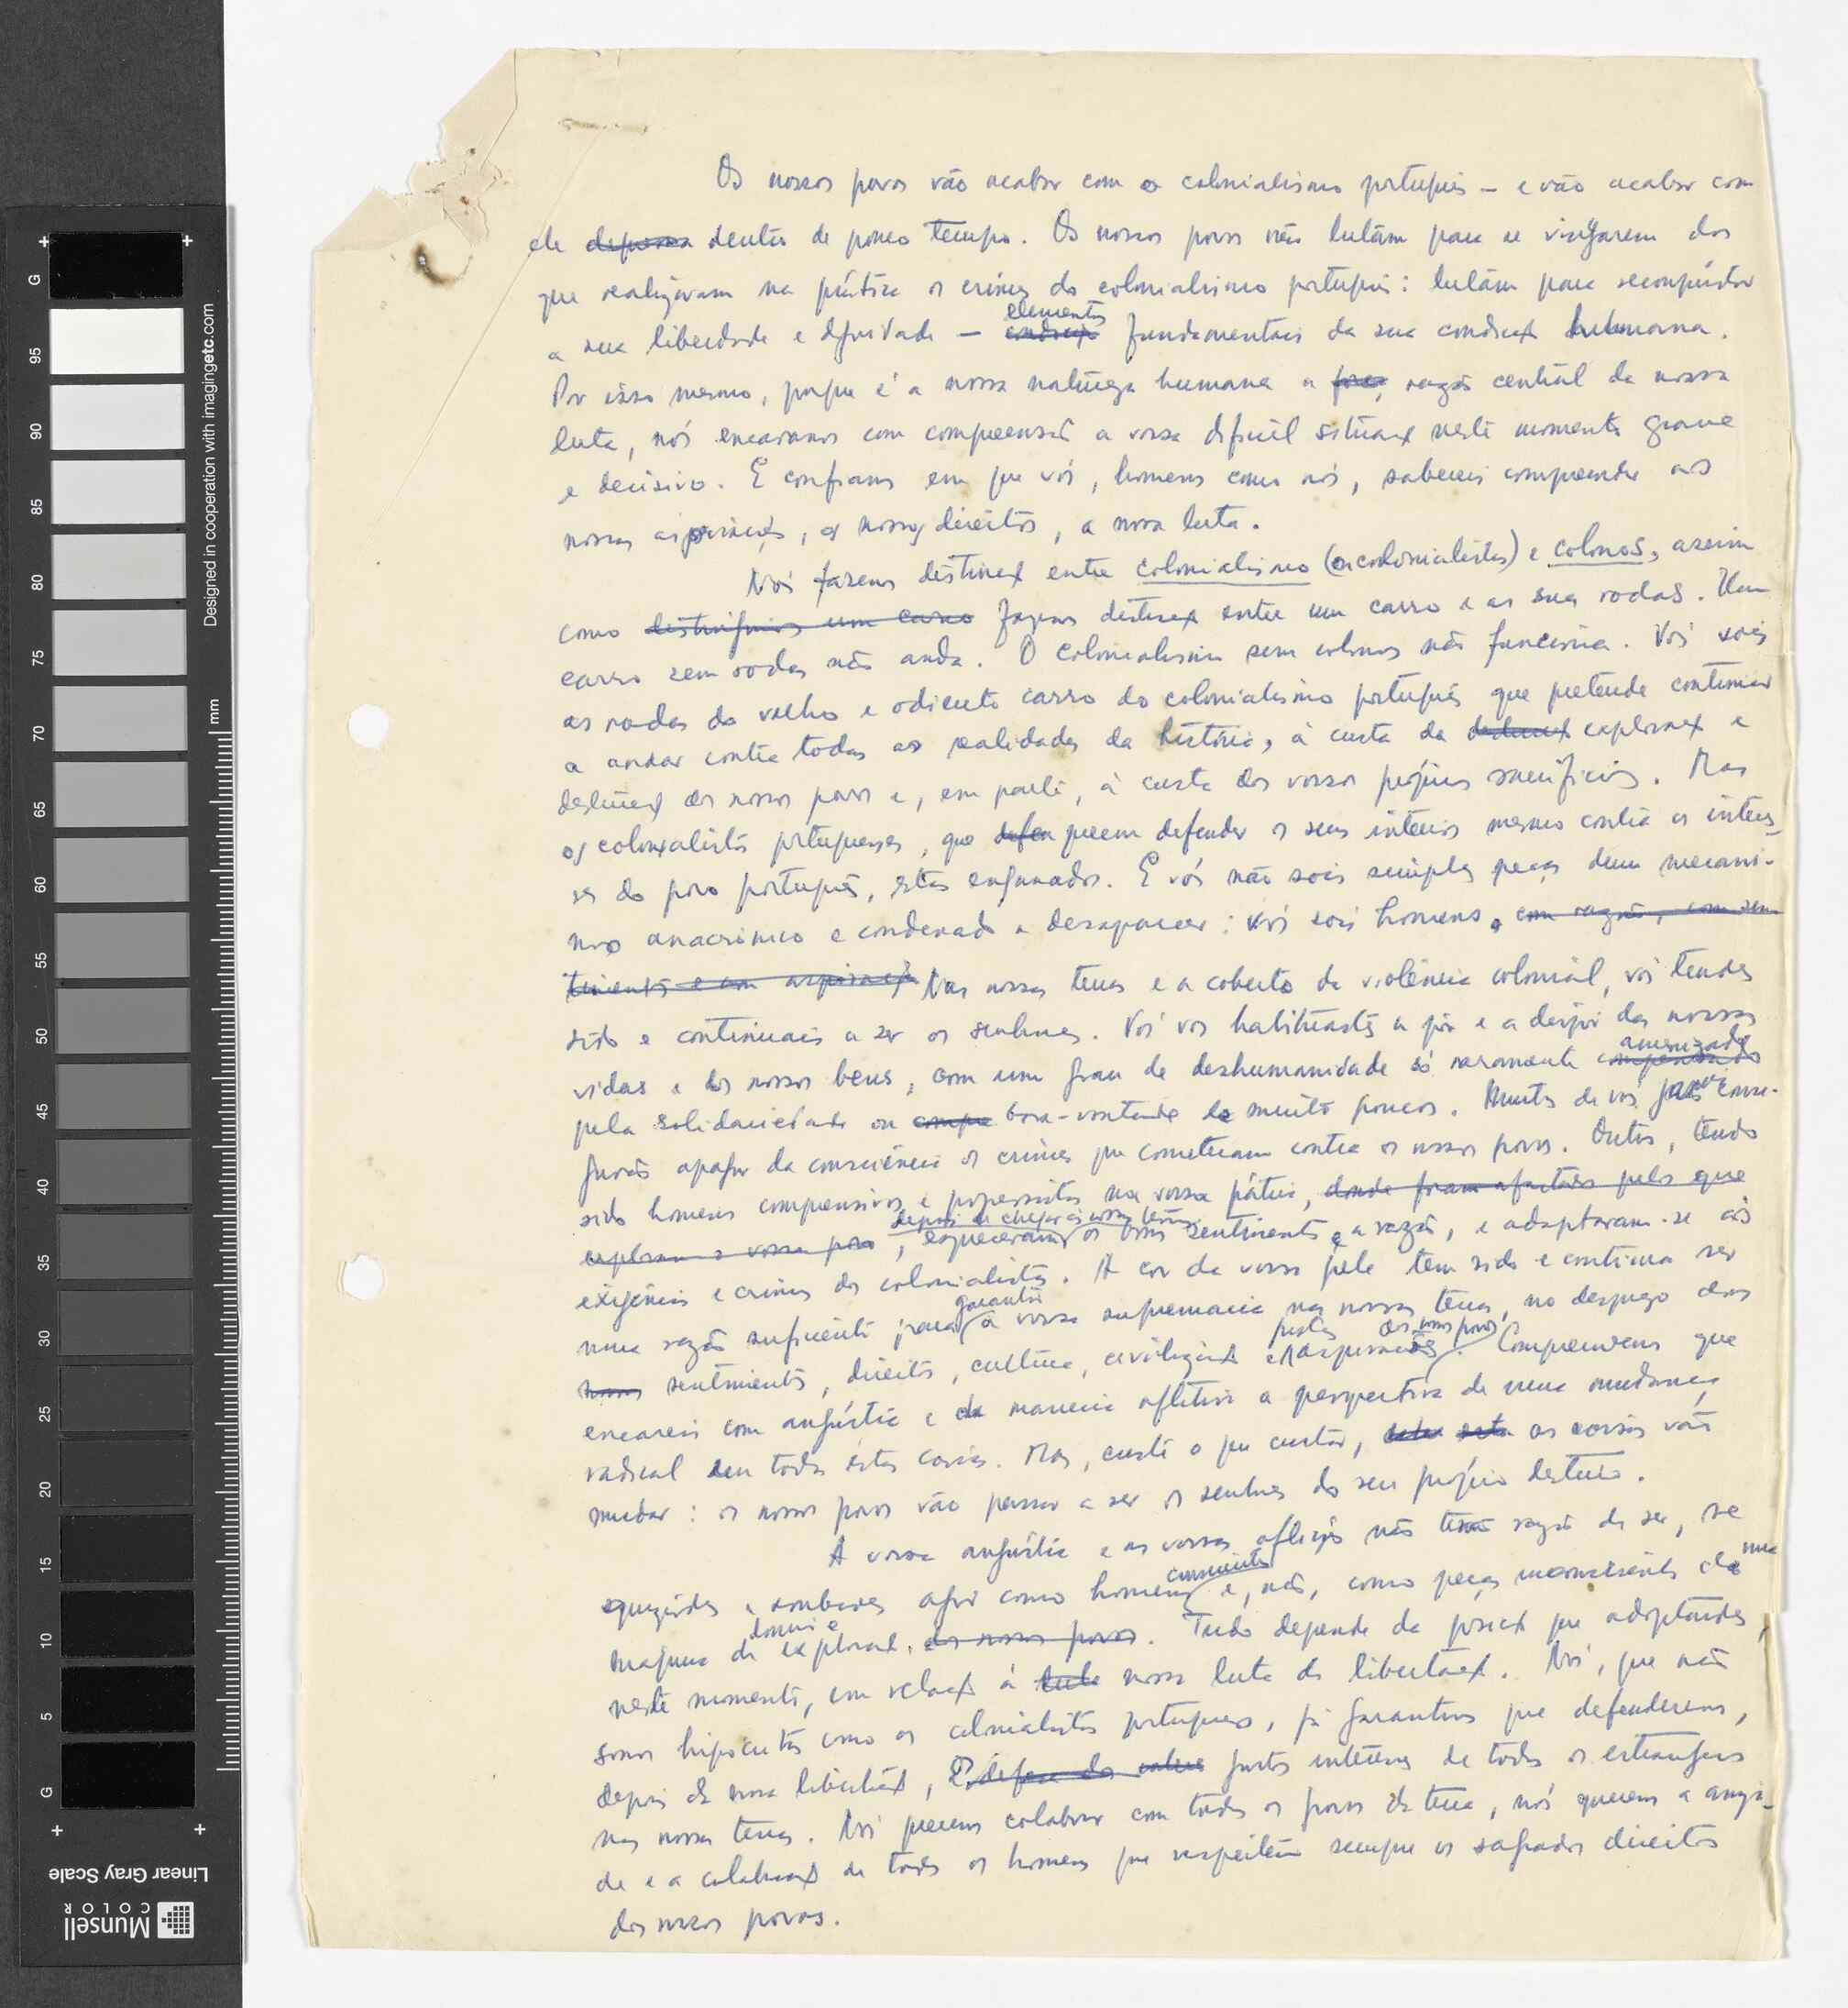 Os nossos povos vão acabar com o colonialismo português – e vão acabar com
ele dentro de pouco tempo. Os nossos povos não lutam para se vingarem dos
que realizavam na prática os crimes do colonialismo português: lutam para reconquistar
a sua liberdade e dignidade – elementos fundamentais da sua condição humana.
Por isso mesmo, porque é a nossa natureza humana a razão central da nossa
luta, nós encaramos com compreensão a vossa difícil situação neste momento grave
e decisivo. E confiamos em que vós, homens como nós, sabereis compreender as
nossas aspirações, os nossos direitos, a nossa luta.
Nós fazemos distinção entre colonialismo (os colonialistas) e colonos, assim
como distinguimos um carro fazemos distinção entre um carro e as suas rodas. Um
carro sem rodas não anda. O colonialismo sem colonos não funciona. Vós sois
as rodas do velho e odiento carro do colonialismo português que pretende continuar
a andar contra todas as realidades da história, à custa da exploração e
dos nossos povos e, em parte, à custa dos vossos próprios sacrifícios. Mas
os colonialistas portugueses, que defen querem defender os seus interesses mesmo contra os interes-
ses do povo português, estão enganados. E vós não sois simples peças dum mecanis-
mo anacrónico e condenado a desaparecer: vós sois homens, com razão, com sen-
timentos e com aspirações Nas nossas terras e a coberto da violência colonial, vós tendes
sido e continuais a ser os senhores. Vós vos habituastes a pôr e a dispôr das nossas
vidas e dos nossos bens, com um grau de deshumanidade só raramente compensado amenizado
pela solidariedade ou compre boa-vontade de muito poucos. Muitos de vós jamais conse-
guirão apagar da consciência os crimes que cometeram contra os nossos povos. Outros, tendo
sido homens compreensivos e progressistas na vossa pátria, donde foram afastados pelos que
exploram o vosso povo, esqueceram, depois de chegar às nossas terras, os bons sentimentos e a razão, e adaptaram-se às
exigências e crimes dos colonialistas. A cor da vossa pele tem sido e continua a ser
uma razão suficiente para garantir a vossa supremacia nas nossas terras, no desprezo dos
nossos sentimentos, direitos, cultura, civilização e justas aspirações dos nossos povos. Compreendemos que
encareis com angústia e de maneira aflitiva a perspectiva de uma mudança
radical em todas estas coisas. Mas, custe o que custar, as coisas vão
mudar: os nossos povos vão passar a ser os senhores do seu próprio destino.
A vossa angústia e as vossas aflições não terão razão de ser, se
quizerdes e souberdes agir como homens conscientes e, não, como peças inconscientes de uma
máquina de domínio e exploração dos nossos povos. Tudo depende da posição que adoptardes,
neste momento, em relação à luta nossa luta de libertação. Nós, que não
somos hipócritas como os colonialistas portugueses, já garantimos que defenderemos,
depois da nossa libertação, a defesa dos justos interesses de todos os estrangeiros
nas nossas terras. Nós queremos colaborar com todos os povos da terra, nós queremos a amiza-
de e a colaboração de todos os homens que respeitem sempre os sagrados direitos
dos nossos povos.
Designed in cooperation with imagingetc.com
mm
G
95
90
85
80
75
70
65
60
55
50
45
40
35
30
25
20
15
10
5
G
Linear Gray Scale
Munsell
COLOR